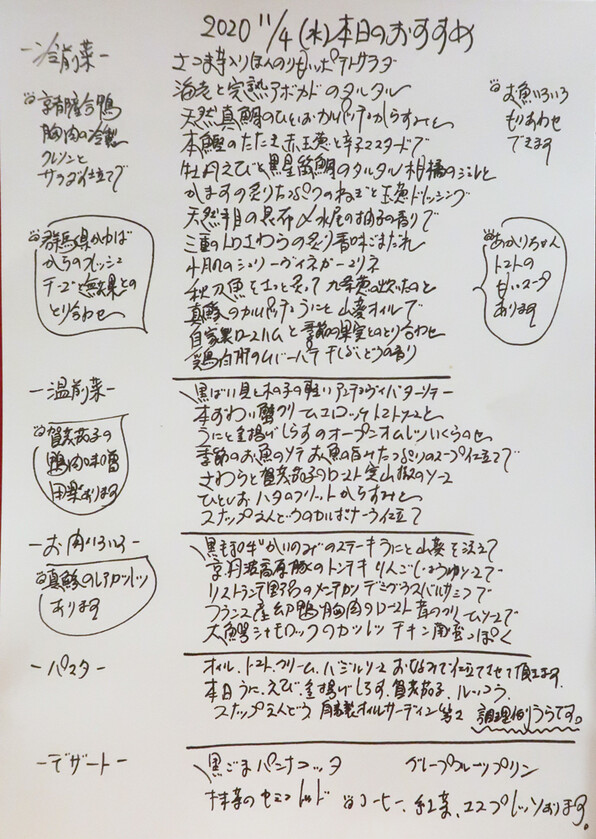 2020 11/4 (水)本日のおすすめ
－冷前菜－
さつま芋入りほんのり甘いポテトサラダ
海老と完熟アボカドのタルタル
天然真鯛のひとしおカルパッチョからすみと
本鰹のたたき 赤玉葱と辛子マスタードで
牡丹えびと黒星笛鯛のタルタル 柑橘のジュレと
かますの炙りたっぷりのねぎと玉葱ドレッシング
天然平目の昆布〆水尾の柚子の香りで
三重のトロさわらの炙り香味ごまだれ
〆鯖のシェリーヴィネガーマリネ
秋刀魚をさっと炙って 九条葱の炊いたのと
真鯵のカルパッチョ うにと山葵オイルで
自家製ロースハムと季節の果実とのとり合わせ
鶏白肝のムパーパテ 干しぶどうの香り
京都産合鴨
胸肉の冷製
クレソンと
サラダ仕立てで
群馬県かゆば
からのフレッシュ
チーズと無花果との
とり合わせ
お魚いろいろ
もりあわせ
できます
あかりちゃん
トマトの
甘いスープ
あります
－温前菜－
黒ばい貝と木の子の軽いアンチョヴィバターソテー
本ずわい蟹クリームコロッケ トマトソースと
うにと釜揚げしらすのオープンオムレツいくらのせ
季節のお魚のソテー お魚の旨みたっぷりのスープ仕立てで
さわらと賀茂茄子のロースト 実山椒のソース
ひとしおハタのフリット からすみと
スナップえんどうのカルボナーラ仕立て
賀茂茄子の
鴨肉味噌
田楽あります
－お肉いろいろ－
黒毛和牛かいのみのステーキ うにと山葵を添えて
京丹波高原豚のトンテキ りんごしょうゆソースで
リストランテ野呂のメンチカツ デミグラスバルサミコで
フランス産幼鴨胸肉のロースト 茸のクリームソースで
大鰐シャモロックのカツレツ チキン南蛮っぽく
真鯵のレアカツレツ
あります
－パスタ－
オイル、トマト、クリーム、バジルソース お好みで仕立てさせて頂きます。
本日うに、えび、釜揚げしらす、賀茂茄子、ルッコラ、
スナップえんどう 自家製オイルサーディン等々 調理例うらです。
－デザート－
黒ごまパンナコッタ グレープフルーツプリン
抹茶のセミフレッド コーヒー、紅茶、エスプレッソあります。